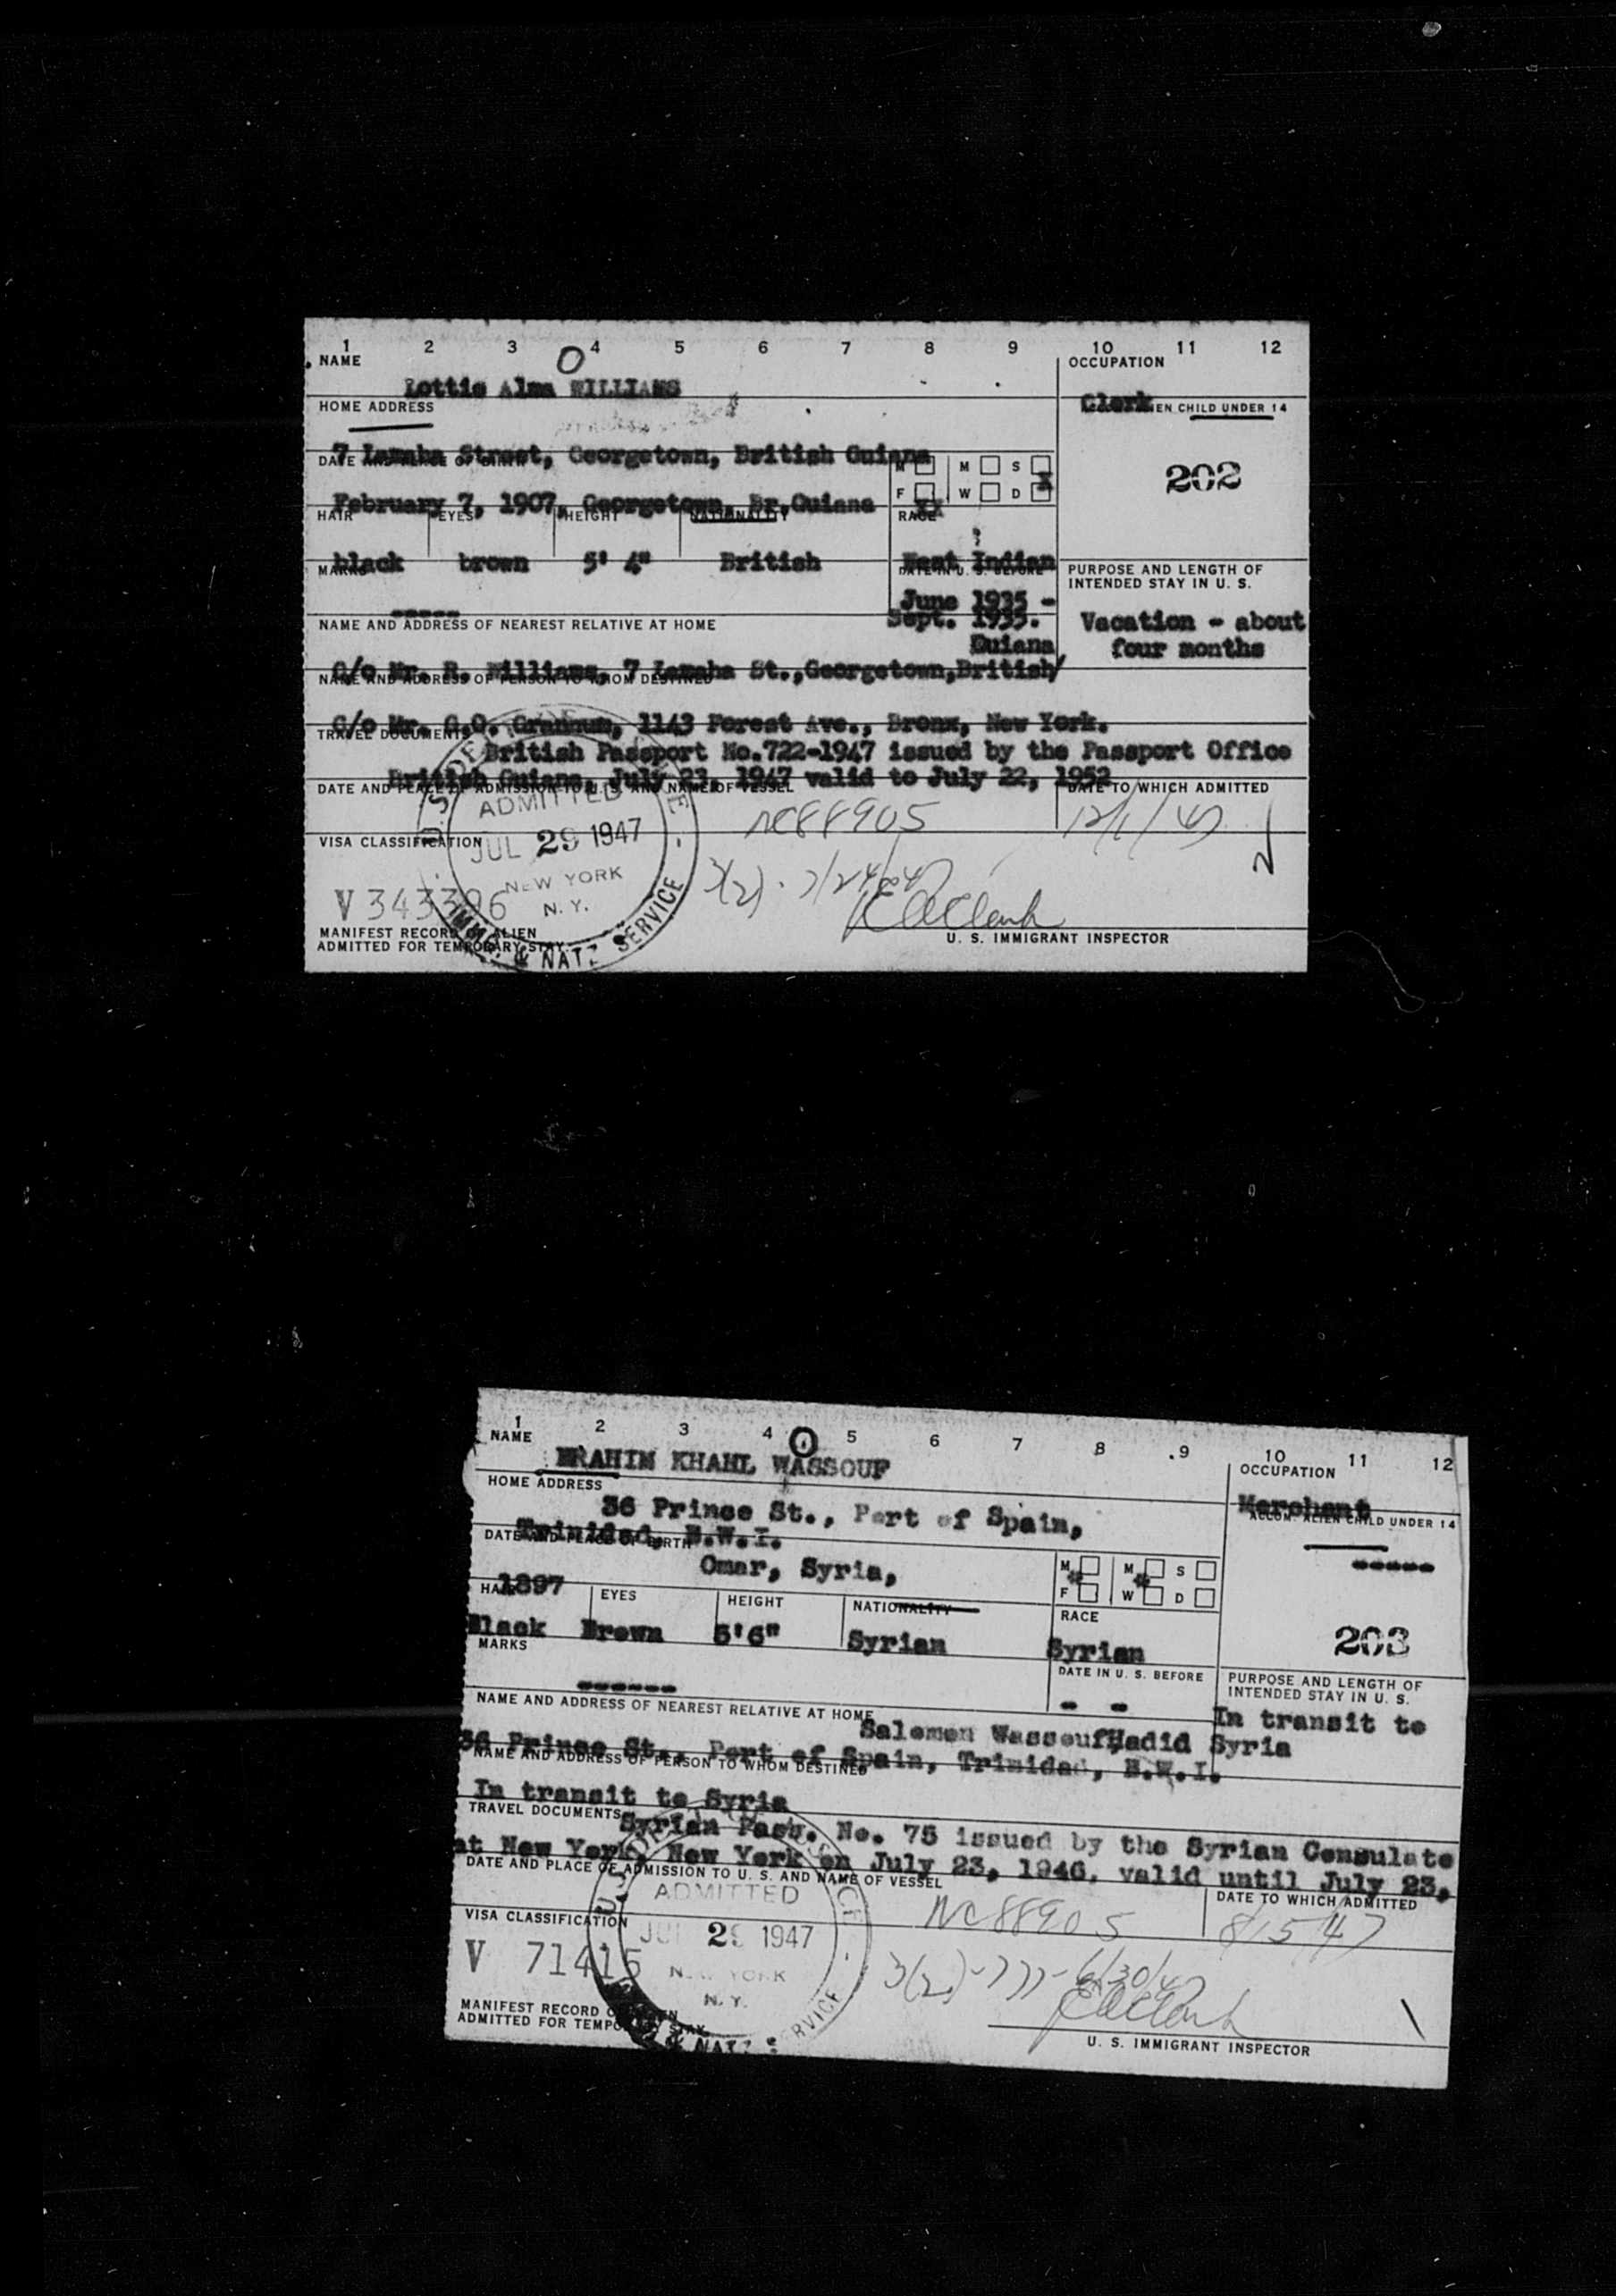 1 2 3 4 5 6 7 8 9 10 11 12
O
NAME
OCCUPATION
Lottie Alma WILLIAMS
Clerk
HOME ADDRESS
EN CHILD UNDER 14
7 Lamaha Street, Georgetown, British Guiana
DATE AND PLACE OF BIRTH
M M S
202
F W D X
February 7, 1907, Georgetown, Br.Guiana
XX
HAIR EYES HEIGHT NATIONALITY RACE
black brown 5' 4" British West Indian
MARKS
DATE IN U. S. BEFORE
PURPOSE AND LENGTH OF
INTENDED STAY IN U. S.
-----
June 1935 -
Sept. 1935.
Vacation - about
four months
NAME AND ADDRESS OF NEAREST RELATIVE AT HOME
Guiana
C/o Mr. R. Williams, 7 Lamaha St.,Georgetown,British/
NAME AND ADDRESS OF PERSON TO WHOM DESTINED
C/o Mr. G.O. Grannum, 1143 Forest Ave., Bronx, New York.
TRAVEL DOCUMENTS
British Passport No.722-1947 issued by the Passport Office
British Guiana, July 23, 1947 valid to July 22, 1952
DATE AND PLACE OF ADMISSION TO U. S. AND NAME OF VESSEL
DATE TO WHICH ADMITTED
ADMITTED
NC88905
12/1/47
VISA CLASSIFICATION
JUL 29 1947
NEW YORK
N. Y.
3(2)
V 343396
IMM. & NATZ SERVICE
MANIFEST RECORD OF ALIEN
ADMITTED FOR TEMPORARY STAY.
U. S. IMMIGRANT INSPECTOR
1 2 3 4 5 6 7 8 9 10 11 12
NAME
OCCUPATION
KHAHL WASSOUF
Merchant
HOME ADDRESS
ACCOM. ALIEN CHILD UNDER 14
36 Prince St., Port of Spain,
Trinidad, B.W.I.
-----
DATE AND PLACE OF BIRTH
Omar, Syria,
1897
M M S
F W D
203
HAIR EYES HEIGHT NATIONALITY RACE
Black Brown 5'6" Syrian Syrian
MARKS
DATE IN U. S. BEFORE
PURPOSE AND LENGTH OF
INTENDED STAY IN U. S.
------
- -
In transit to
Syria
NAME AND ADDRESS OF NEAREST RELATIVE AT HOME
Salomen Wassouf Hadid
36 Prince St., Port of Spain, Trinidad, B.W.I.
NAME AND ADDRESS OF PERSON TO WHOM DESTINED
In transit to Syria
TRAVEL DOCUMENTS
Syrian Pass. No. 75 issued by the Syrian Consulate
at New York, New York on July 23, 1946, valid until July 23,
DATE AND PLACE OF ADMISSION TO U. S. AND NAME OF VESSEL
DATE TO WHICH ADMITTED
ADMITTED
NC88905
8/15/47
VISA CLASSIFICATION
29 1947
N. Y.
V 71415
MANIFEST RECORD OF ALIEN
ADMITTED FOR TEMPORARY STAY.
& NATZ SERVICE
U. S. IMMIGRANT INSPECTOR